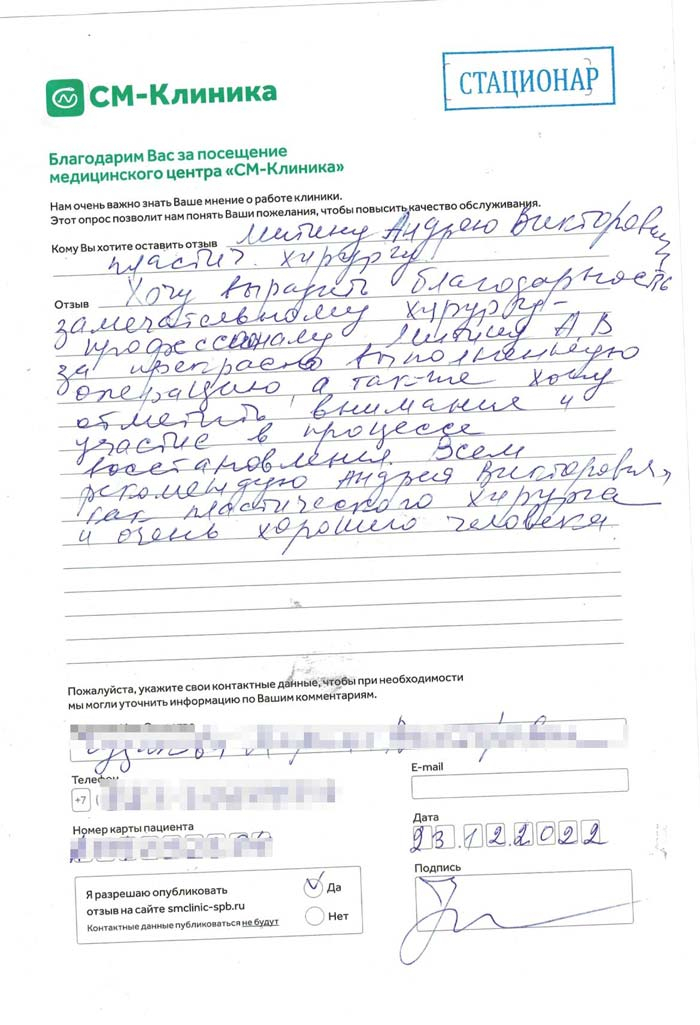 СТАЦИОНАР
СМ-Клиника
Благодарим Вас за посещение
медицинского центра «СМ-Клиника»
Нам очень важно знать Ваше мнение о работе клиники.
Этот опрос позволит нам понять Ваши пожелания, чтобы повысить качество обслуживания.
Кому Вы хотите оставить отзыв Митину Андрею Викторовичу
пластич. хирургу
Отзыв Хочу выразить благодарность
замечательному хирургу-
профессионалу Митину А.В
за прекрасно выполненную
операцию, а так-же хочу
отметить внимание и
участие в процессе
восстановления. Всем
рекомендую Андрея Викторовича,
как пластического хирурга
и очень хорошего человека
Пожалуйста, укажите свои контактные данные, чтобы при необходимости
мы могли уточнить информацию по Вашим комментариям.
Телефон
+7 (
E-mail
Номер карты пациента
Дата
23.12.2022
Подпись
Я разрешаю опубликовать
отзыв на сайте smclinic-spb.ru
Контактные данные публиковаться не будут
Да
Нет